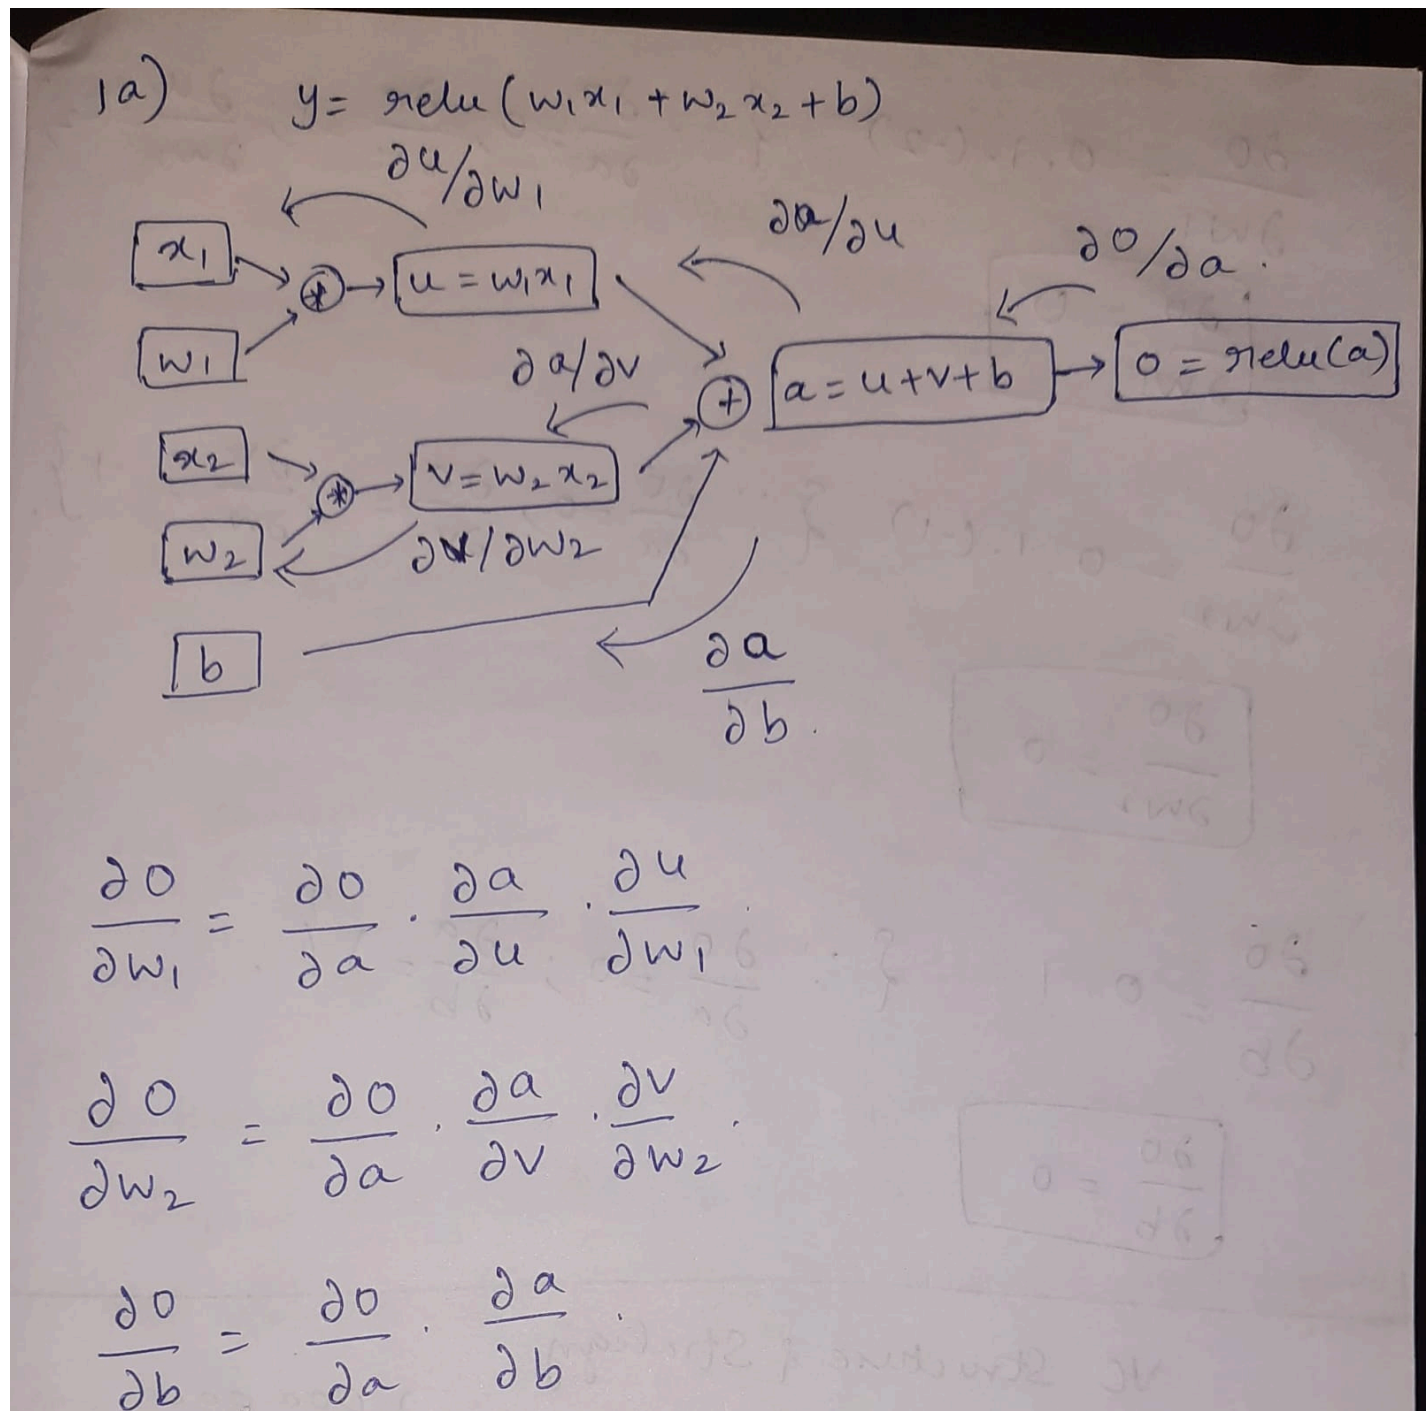 1a) y = relu (w₁x₁ + w₂x₂ + b)
∂u/∂w₁
∂a/∂u
∂o/∂a
x₁
* u = w₁x₁
w₁
∂a/∂v
+ a = u+v+b
o = relu(a)
x₂
* v = w₂x₂
w₂
∂v/∂w₂
b
∂a/∂b
∂o/∂w₁ = ∂o/∂a . ∂a/∂u . ∂u/∂w₁
∂o/∂w₂ = ∂o/∂a . ∂a/∂v . ∂v/∂w₂ .
∂o/∂b = ∂o/∂a . ∂a/∂b .